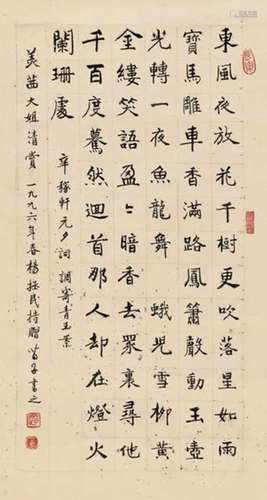 東風夜放花千樹更吹落星如雨
寶馬雕車香滿路鳳簫聲動玉壺
光轉一夜魚龍舞 蛾兒雪柳黃
金縷笑語盈盈暗香去眾裏尋他
千百度驀然迴首那人却在燈火
闌珊處
辛稼軒元夕詞調寄青玉案
美茜大姐清賞一九九六年春楊振民持贈 書之